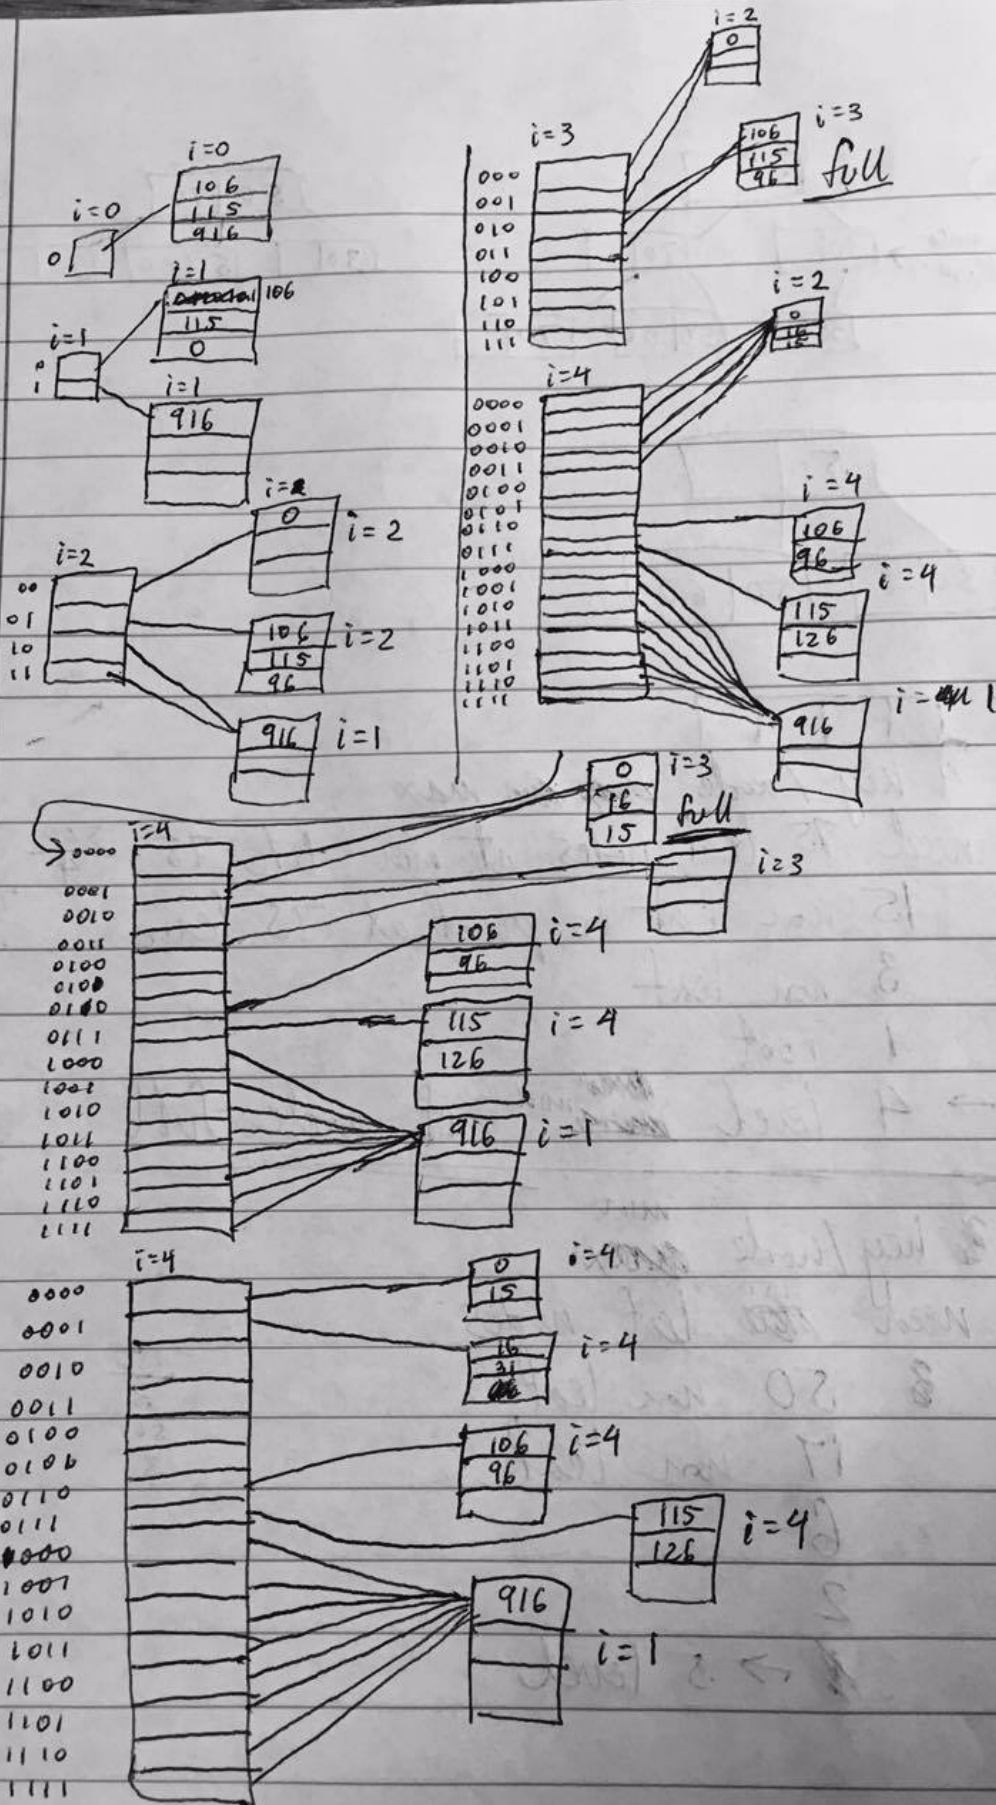 i=0
106
115
916
i=0
0
i=1
106
115
0
i=1
0
1
i=1
916
i=2
0
i=2
i=2
00
01
10
11
106
115
96
i=2
916
i=1
i=2
0
i=3
000
001
010
011
100
101
110
111
106
115
96
i=3
full
i=2
0
16
15
i=4
0000
0001
0010
0011
0100
0101
0110
0111
1000
1001
1010
1011
1100
1101
1110
1111
i=4
106
96
i=4
115
126
916
i=1
0
16
15
i=3
full
i=3
i=4
0000
0001
0010
0011
0100
0101
0110
0111
1000
1001
1010
1011
1100
1101
1110
1111
106
96
i=4
115
126
i=4
916
i=1
i=4
0000
0001
0010
0011
0100
0101
0110
0111
1000
1001
1010
1011
1100
1101
1110
1111
0
15
i=4
16
31
i=4
106
96
i=4
115
126
i=4
916
i=1